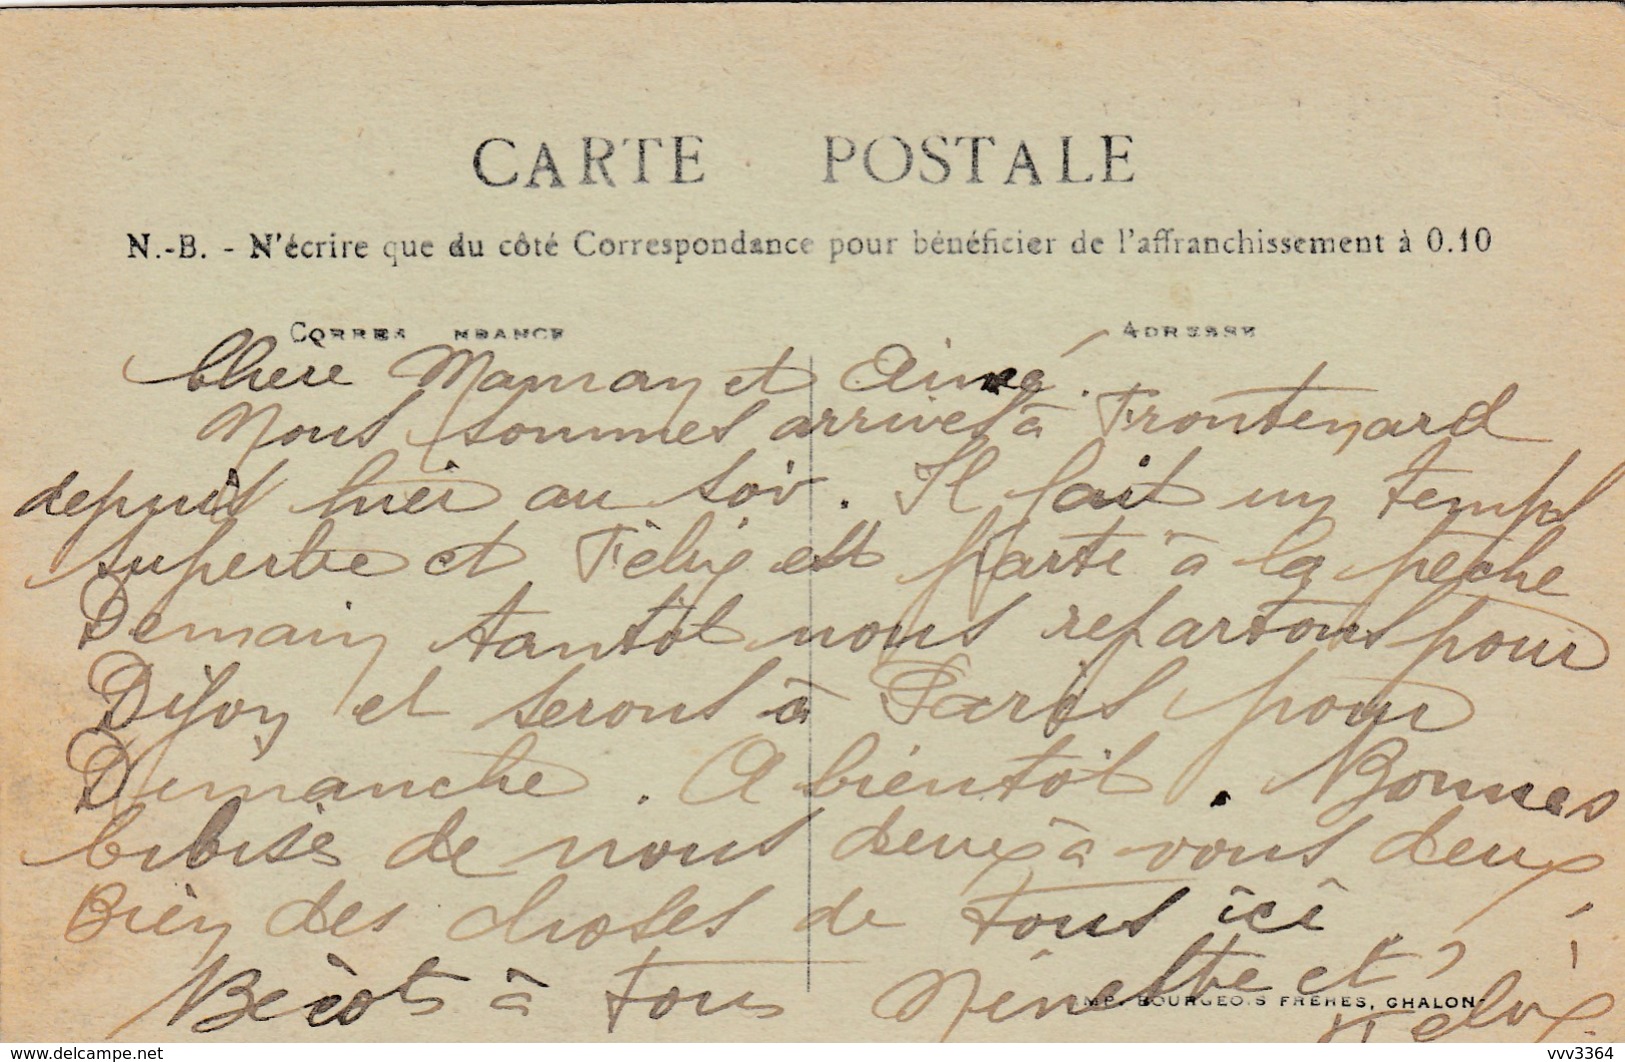 CARTE POSTALE
N.-B. - N'écrire que du côté Correspondance pour bénéficier de l'affranchissement à 0.10
CORRES NDANCE ADRESSE
Chere Maman et Aimé.
Nous sommes arrives à Frontenard
depuis hier au soir. Il fait un temps
superbe et Félix est parti à la pêche
Demain tantôt nous repartons pour
Dijon et serons à Paris pour
Dimanche. A bientôt. Bonnes
bibises de nous deux à vous deux
Bien des choses de tous ici.
Becots à tous Ninette et
Felix
IMP. BOURGEOIS FRÈRES, CHALON-
delcampe.net
vvv3364